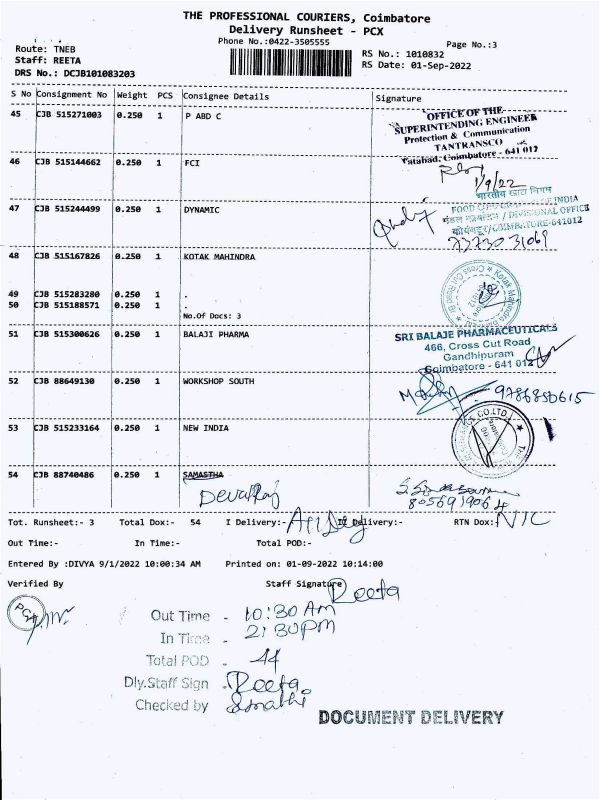 THE PROFESSIONAL COURIERS, Coimbatore
Delivery Runsheet - PCX
Phone No.:0422-3505555
Page No.:3
Route: TNEB
Staff: REETA
DRS No.: DCJB101083203
RS No.: 1010832
RS Date: 01-Sep-2022
S No Consignment No Weight PCS Consignee Details Signature
45 CJB 515271003 0.250 1 P ABD C
OFFICE OF THE
SUPERINTENDING ENGINEER
Protection & Communication
TANTRANSCO
Tatabad, Coimbatore - 641 012
46 CJB 515144662 0.250 1 FCI
1/9/22
भारतीय खाद्य निगम
FOOD CORPORATION OF INDIA
मंडल कार्यालय / DIVISIONAL OFFICE
कोयंबटूर/COIMBATORE-641012
47 CJB 515244499 0.250 1 DYNAMIC
48 CJB 515167826 0.250 1 KOTAK MAHINDRA
49 CJB 515283280 0.250 1 .
50 CJB 515188571 0.250 1 .
No.Of Docs: 3
51 CJB 515300626 0.250 1 BALAJI PHARMA
SRI BALAJE PHARMACEUTICALS
466, Cross Cut Road
Gandhipuram
Coimbatore - 641 012
52 CJB 88649130 0.250 1 WORKSHOP SOUTH
9786850615
53 CJB 515233164 0.250 1 NEW INDIA
54 CJB 88740486 0.250 1 SAMASTHA
Devaraj
8056919064
Tot. Runsheet:- 3 Total Dox:- 54 I Delivery:- II Delivery:- RTN Dox:- NIL
Out Time:- In Time:- Total POD:-
Entered By :DIVYA 9/1/2022 10:00:34 AM Printed on: 01-09-2022 10:14:00
Verified By Staff Signature Reeta
Out Time - 10:30 AM
In Time - 2:30pm
Total POD - 44
Dly.Staff Sign - Reeta
Checked by
DOCUMENT DELIVERY